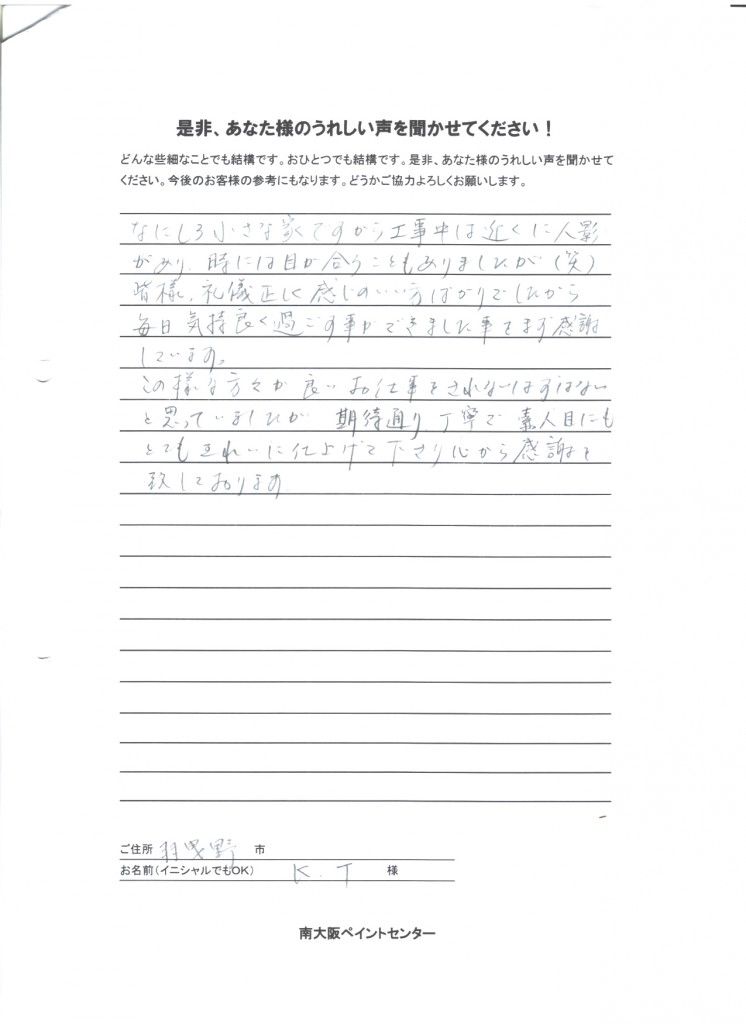 是非、あなた様のうれしい声を聞かせてください！
どんな些細なことでも結構です。おひとつでも結構です。是非、あなた様のうれしい声を聞かせて
ください。今後のお客様の参考にもなります。どうかご協力よろしくお願いします。
なにしろ小さな家ですから工事中は近くに人影
があり、時には目が合うこともありましたが（笑）
皆様、礼儀正しく感じのいい方ばかりでしたから
毎日気持良く過ごす事ができました事をまず感謝
しています。
この様な方々が良いお仕事をされないはずはない
と思っていましたが 期待通り、丁寧で素人目にも
とてもきれいに仕上げて下さり心から感謝を
致しております
ご住所 羽曳野 市
お名前（イニシャルでもOK） K.T 様
南大阪ペイントセンター